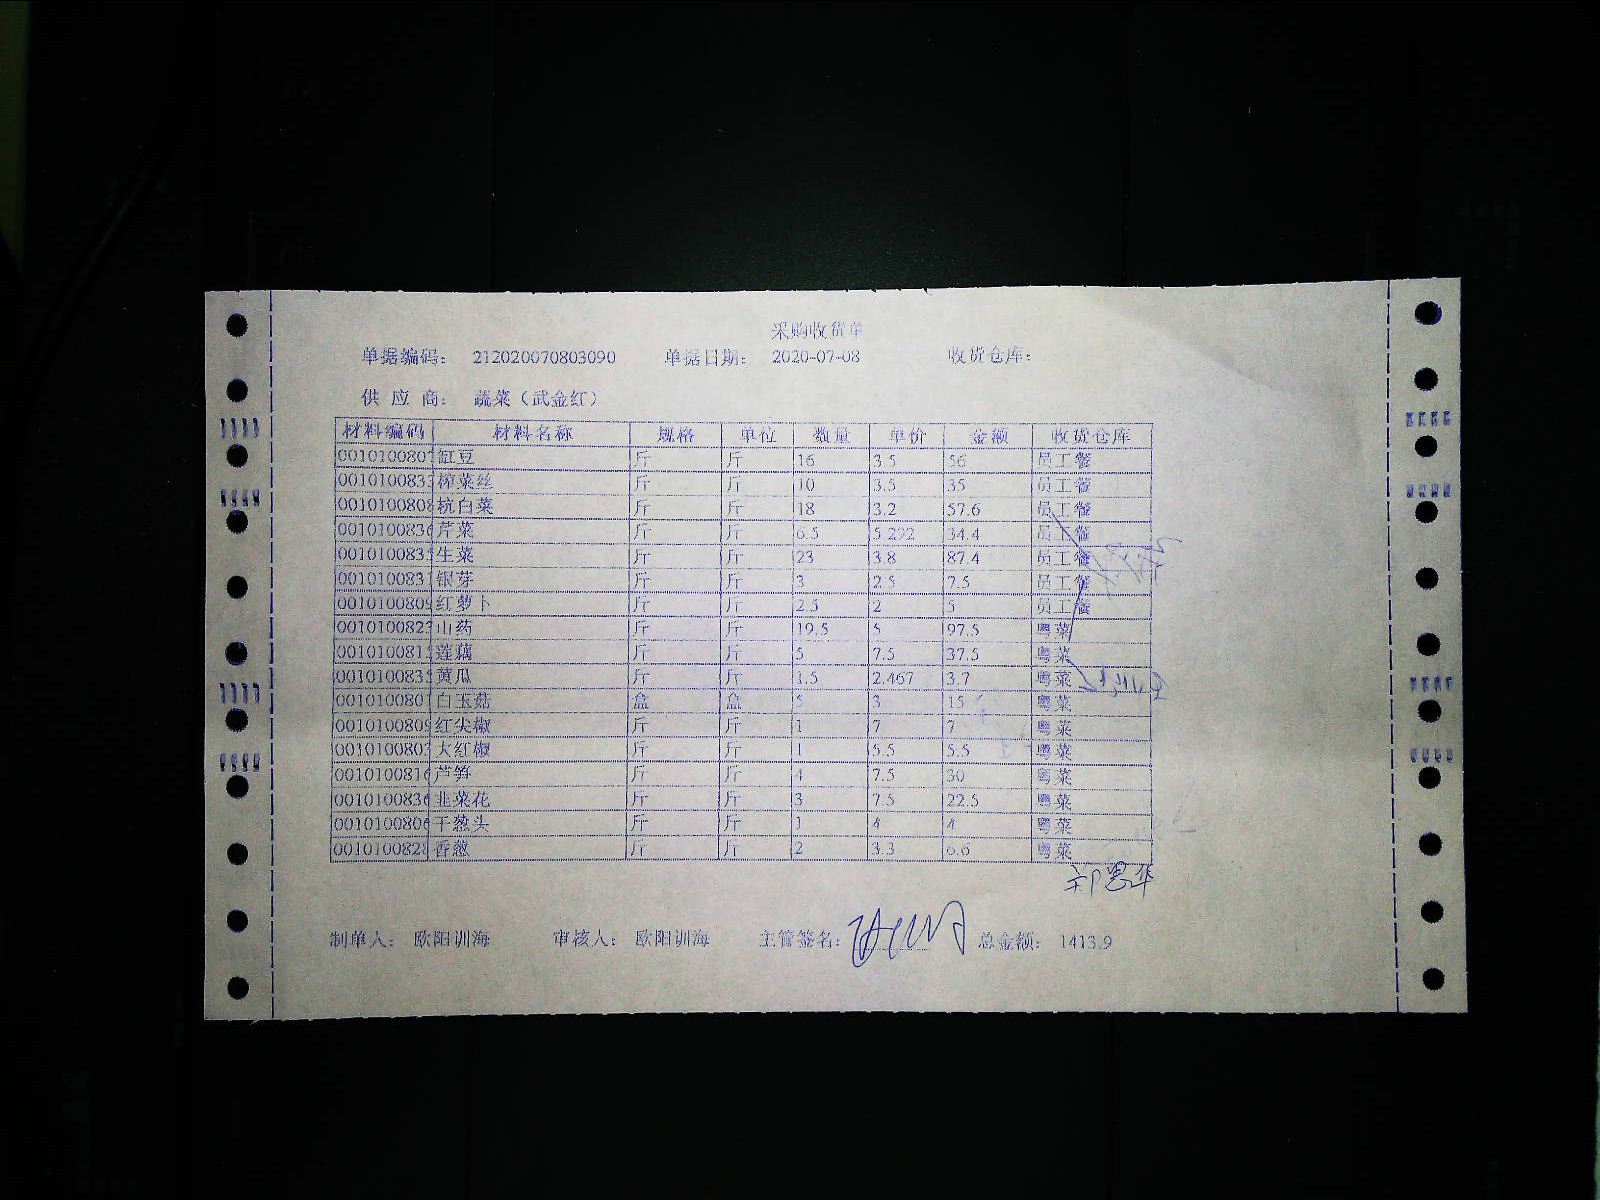 采购收货单
单据编码： 212020070803090 单据日期： 2020-07-08 收货仓库：
供 应 商： 蔬菜（武金红）
材料编码 材料名称 规格 单位 数量 单价 金额 收货仓库
0010100807 缸豆 斤 斤 16 3.5 56 员工餐
0010100833 榨菜丝 斤 斤 10 3.5 35 员工餐
0010100808 杭白菜 斤 斤 18 3.2 57.6 员工餐
0010100836 芹菜 斤 斤 6.5 5.292 34.4 员工餐
0010100835 生菜 斤 斤 23 3.8 87.4 员工餐
0010100831 银芽 斤 斤 3 2.5 7.5 员工餐
0010100809 红萝卜 斤 斤 2.5 2 5 员工餐
0010100823 山药 斤 斤 19.5 5 97.5 粤菜
0010100815 莲藕 斤 斤 5 7.5 37.5 粤菜
0010100835 黄瓜 斤 斤 1.5 2.467 3.7 粤菜
0010100801 白玉菇 盒 盒 5 3 15 粤菜
0010100809 红尖椒 斤 斤 1 7 7 粤菜
0010100803 大红椒 斤 斤 1 5.5 5.5 粤菜
0010100816 芦笋 斤 斤 4 7.5 30 粤菜
0010100836 韭菜花 斤 斤 3 7.5 22.5 粤菜
0010100806 干葱头 斤 斤 1 4 4 粤菜
0010100828 香葱 斤 斤 2 3.3 6.6 粤菜
制单人： 欧阳训海 审核人： 欧阳训海 主管签名： 总金额： 1413.9